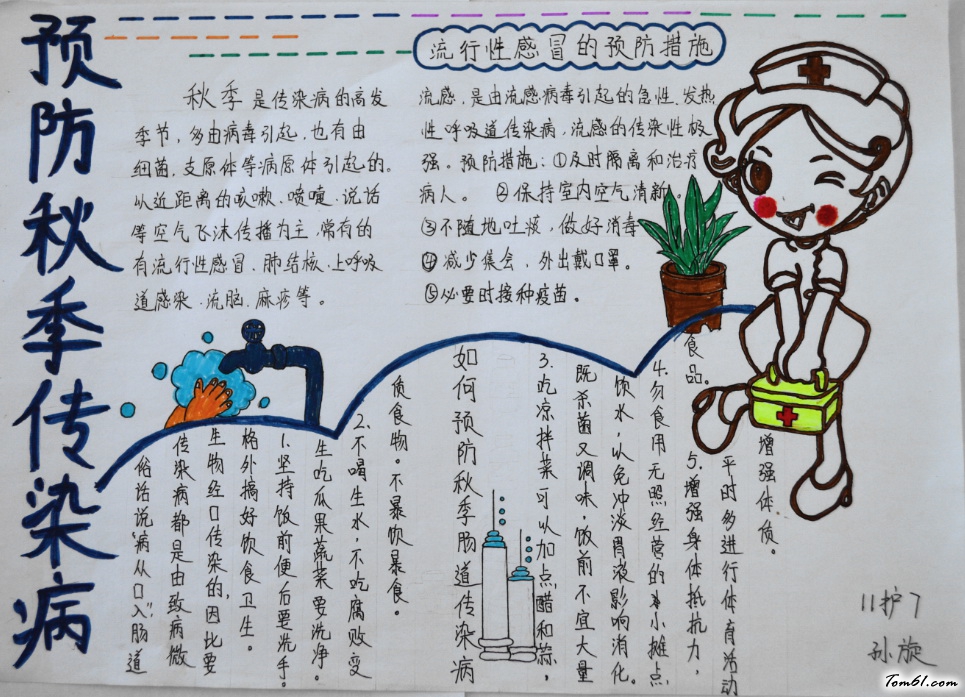 预防秋季传染病
流行性感冒的预防措施
秋季是传染病的高发
季节，多由病毒引起，也有由
细菌、支原体等病原体引起的。
以近距离的咳嗽、喷嚏、说话
等空气飞沫传播为主，常有的
有流行性感冒、肺结核、上呼吸
道感染、流脑、麻疹等。
流感，是由流感病毒引起的急性、发热
性呼吸道传染病，流感的传染性极
强。预防措施：①及时隔离和治疗
病人。②保持室内空气清新。
③不随地吐痰，做好消毒
④减少集会，外出戴口罩。
⑤必要时接种疫苗。
如何预防秋季肠道传染病
俗话说“病从口入”，肠道
传染病都是由致病微
生物经口传染的，因此要
格外搞好饮食卫生。
1.坚持饭前便后要洗手。
生吃瓜果蔬菜要洗净。
2.不喝生水，不吃腐败变
质食物。不暴饮暴食。
3.吃凉拌菜可以加点醋和蒜，
既杀菌又调味，饭前不宜大量
饮水，以免冲淡胃液影响消化。
4.勿食用无照经营的小摊点
食品。
5.增强身体抵抗力，
平时多进行体育活动
增强体质。
11护7
孙旋
Tom61.com